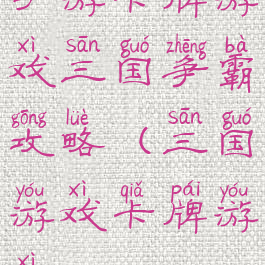 xì sān guó zhēng bà
戏三国争霸
gōng lüè sān guó
攻略(三国
yóu xì qiǎ pái yóu
游戏卡牌游
xì